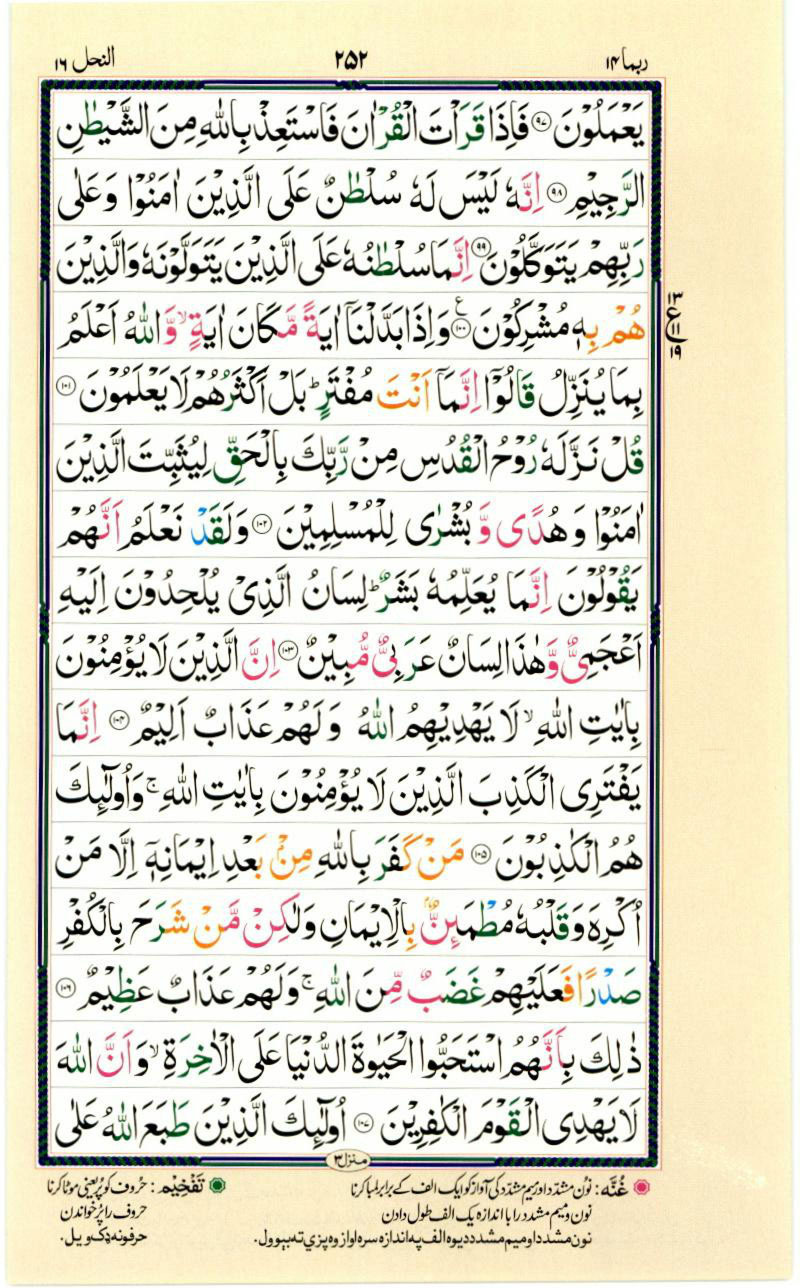 ربما ۱۴
۲۵۲
النحل ۱۶
يَعْمَلُوْنَ ﴿۹۷﴾ فَاِذَا قَرَاْتَ الْقُرْاٰنَ فَاسْتَعِذْ بِاللّٰهِ مِنَ الشَّيْطٰنِ
الرَّجِيْمِ ﴿۹۸﴾ اِنَّهٗ لَيْسَ لَهٗ سُلْطٰنٌ عَلَى الَّذِيْنَ اٰمَنُوْا وَعَلٰى
رَبِّهِمْ يَتَوَكَّلُوْنَ ﴿۹۹﴾ اِنَّمَا سُلْطٰنُهٗ عَلَى الَّذِيْنَ يَتَوَلَّوْنَهٗ وَالَّذِيْنَ
هُمْ بِهٖ مُشْرِكُوْنَ ﴿۱۰۰﴾ۧ وَاِذَا بَدَّلْنَاۤ اٰيَةً مَّكَانَ اٰيَةٍ ۙ وَّاللّٰهُ اَعْلَمُ
۱۳
ع
۱۱
۱۹
بِمَا يُنَزِّلُ قَالُوْۤا اِنَّمَاۤ اَنْتَ مُفْتَرٍ ؕ بَلْ اَكْثَرُهُمْ لَا يَعْلَمُوْنَ ﴿۱۰۱﴾
قُلْ نَزَّلَهٗ رُوْحُ الْقُدُسِ مِنْ رَّبِّكَ بِالْحَقِّ لِيُثَبِّتَ الَّذِيْنَ
اٰمَنُوْا وَهُدًى وَّبُشْرٰى لِلْمُسْلِمِيْنَ ﴿۱۰۲﴾ وَلَقَدْ نَعْلَمُ اَنَّهُمْ
يَقُوْلُوْنَ اِنَّمَا يُعَلِّمُهٗ بَشَرٌ ؕ لِسَانُ الَّذِيْ يُلْحِدُوْنَ اِلَيْهِ
اَعْجَمِيٌّ وَّهٰذَا لِسَانٌ عَرَبِيٌّ مُّبِيْنٌ ﴿۱۰۳﴾ اِنَّ الَّذِيْنَ لَا يُؤْمِنُوْنَ
بِاٰيٰتِ اللّٰهِ ۙ لَا يَهْدِيْهِمُ اللّٰهُ وَلَهُمْ عَذَابٌ اَلِيْمٌ ﴿۱۰۴﴾ اِنَّمَا
يَفْتَرِى الْكَذِبَ الَّذِيْنَ لَا يُؤْمِنُوْنَ بِاٰيٰتِ اللّٰهِ ۚ وَاُولٰٓئِكَ
هُمُ الْكٰذِبُوْنَ ﴿۱۰۵﴾ مَنْ كَفَرَ بِاللّٰهِ مِنْۢ بَعْدِ اِيْمَانِهٖۤ اِلَّا مَنْ
اُكْرِهَ وَقَلْبُهٗ مُطْمَئِنٌّۢ بِالْاِيْمَانِ وَلٰكِنْ مَّنْ شَرَحَ بِالْكُفْرِ
صَدْرًا فَعَلَيْهِمْ غَضَبٌ مِّنَ اللّٰهِ ۚ وَلَهُمْ عَذَابٌ عَظِيْمٌ ﴿۱۰۶﴾
ذٰلِكَ بِاَنَّهُمُ اسْتَحَبُّوا الْحَيٰوةَ الدُّنْيَا عَلَى الْاٰخِرَةِ ۙ وَاَنَّ اللّٰهَ
لَا يَهْدِى الْقَوْمَ الْكٰفِرِيْنَ ﴿۱۰۷﴾ اُولٰٓئِكَ الَّذِيْنَ طَبَعَ اللّٰهُ عَلٰى
منزل ۳
غُنَّه: نون مشدد اور میم مشدد کی آواز کو ایک الف کے برابر لمبا کرنا
نون و میم مشدد را با اندازه یک الف طول دادن
نون مشدد او میم مشدد د یوه الف په اندازه سره اواز وه پزې ته بېوول.
تَفْخِيْم: حُروف کو پُر یعنی موٹا کرنا
حروف را پُر خواندن
حرفونه ډک ویل.